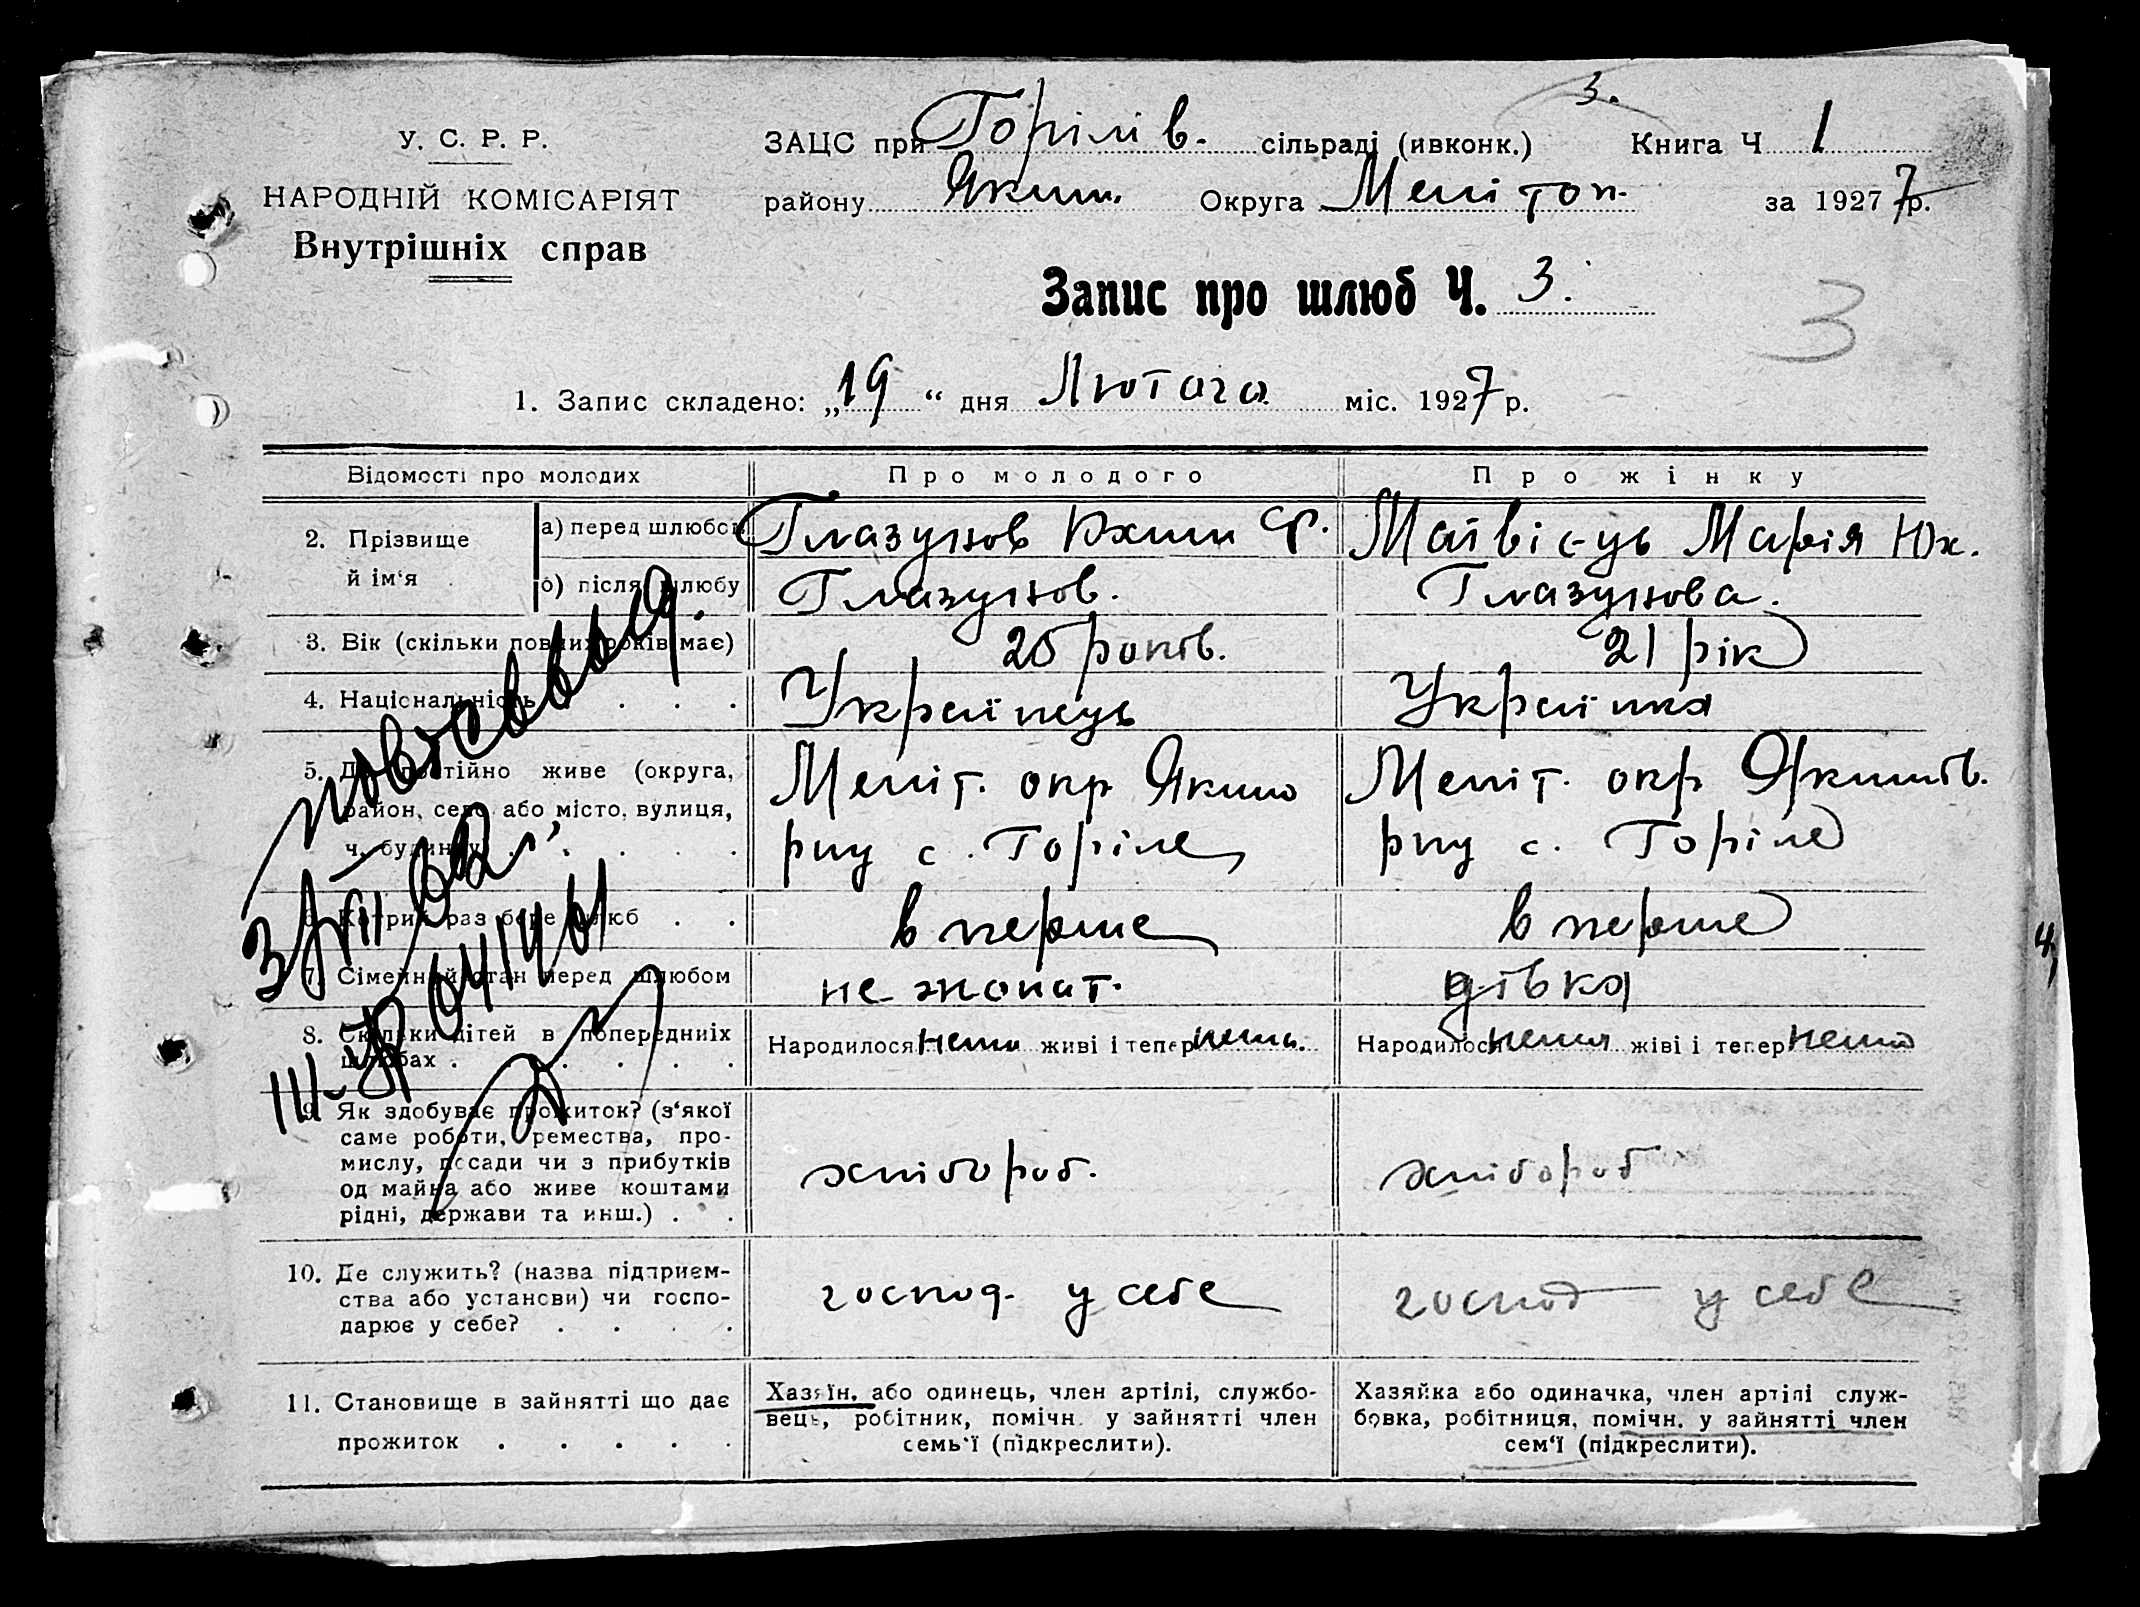 3.
У. С. Р. Р.
НАРОДНІЙ КОМІСАРІЯТ
Внутрішніх справ
ЗАЦС при Горілів. сільраді (ивконк.) Книга Ч 1
району Яким. Округа Меліт оп. за 1927 7 р.
Запис про шлюб Ч. 3.
3
1. Запис складено: „19“ дня Лютого міс. 1927 р.
Відомості про молодих
Про молодого
Про жінку
2. Прізвище й ім‘я
а) перед шлюбом
Глазунов Юхим Ф.
Матвієць Марія Юх.
б) після шлюбу
Глазунов.
Глазунова.
3. Вік (скільки повних років має)
25 років.
21 рік
4. Національність . . . .
Українець
Українка
5. Де постійно живе (округа,
район, село або місто, вулиця,
ч. будинку) . . . . .
Меліт. окр Якимо
рну с. Горіле
Меліт. окр Якимів.
рну с. Горіле
6. Котрий раз бере шлюб . .
в перше
в перше
7. Сімейний стан перед шлюбом
не жонат.
дівка
8. Скільки дітей в попередниіх
шлюбах . . . . .
Народилося нема живі і тепер нема.
Народилося нема жіві і тепер нема
9. Як здобуває прожиток? (з‘якої
саме роботи, ремества, про-
мислу, посади чи з прибутків
од майна або живе коштами
рідні, держави та инш.) . .
хлібороб.
хлібороб
10. Де служить? (назва підприєм-
ства або установи) чи госпо-
дарює у себе? . . . .
господ. у себе
господ у себе
11. Становище в зайнятті що дає
прожиток . . . . .
Хазяїн, або одинець, член артілі, службо-
вець, робітник, помічн. у зайнятті член
семь‘ї (підкреслити).
Хазяйка або одиначка, член артілі служ-
бовка, робітниця, помічн. у зайнятті член
сем‘ї (підкреслити).